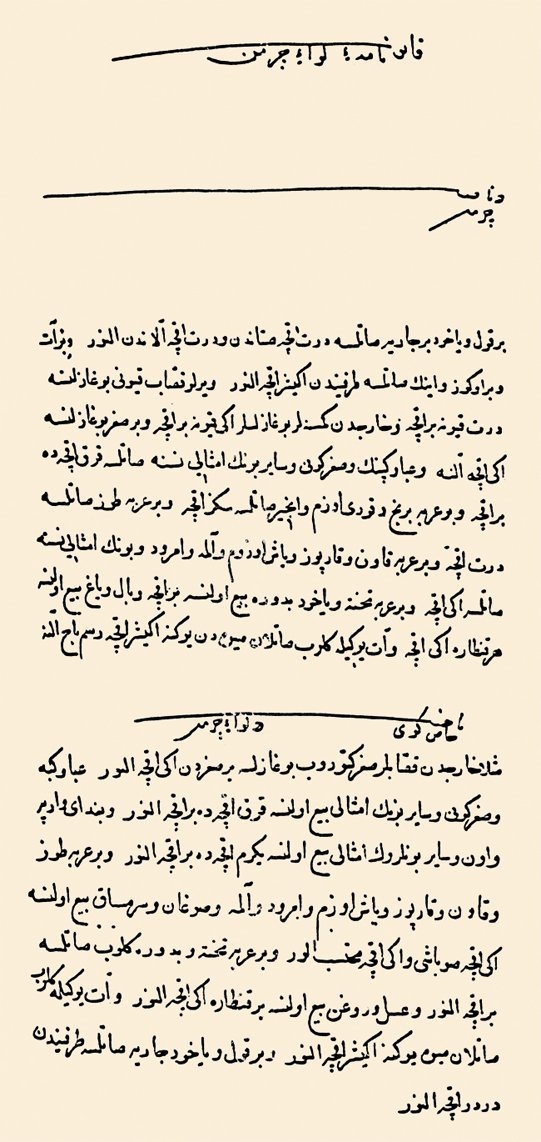 قانوننامهٔ لوای چرمن
در نفس چرمن
بر قول و یاخود بر جاریه صاتلسه درت اقچه صتاندن و درت اقچه آلاندن النور و بر آت
و بر اوکوز و اینك صاتلسه طرفیندن اکیشر اقچه النور و یرلو قصاب قیونی بوغازلسه
درت قیونه بر اقچه و خارجدن کمسنه لر بوغازلسلر اکی قیونه بر اقچه و بر صغر بوغازلسه
اکی اقچه النه و عبا و کپنك و صغر کونی و سایر بونك امثالی نسنه صاتلسه قرق اقچه ده
بر اقچه و بر عربه برنج و قوری اوزم و انجیر صاتلسه سکز اقچه و بر عربه طوز صاتلسه
درت اقچه و بر عربه قاون و قارپوز و یاش اوزوم و آلمه و امرود و بونك امثالی نسنه
صاتلسه اکی اقچه و بر عربه تخته و یاخود بدوره بیع اولنسه بر اقچه و بال و یاغ بیع اولنسه
هر قنطاره اکی اقچه و آت یوکیله کلوب صاتلان میوه دن یوکنه اکیشر اقچه رسم باج النه
ناحیهٔ خاص کوی در لوای چرمن
مثلا خارجدن قصابلر صغر کتوروب بوغازلسه بر صغردن اکی اقچه النور عبا و کبه
و صغر کونی و سایر بونك امثالی بیع اولنسه قرق اقچه ده بر اقچه النور و بغدای و ارپه
و اون و سایر بونلروك امثالی بیع اولنسه یکرمی اقچه ده بر اقچه النور و بر عربه طوز
و قاون و قارپوز و یاش اوزم و امرود و آلمه و صوغان و سرمساق بیع اولنسه
اکی اقچه صوباشی و اکی اقچه محتسب الور و بر عربه تخته و بدوره کلوب صاتلسه
بر اقچه النور و عسل و روغن بیع اولنسه بر قنطاره اکی اقچه النور و آت یوکیله کلوب
صاتلان میوه یوکنه اکیشر اقچه النور و بر قول و یاخود جاریه صاتلسه طرفیندن
دردر اقچه النور